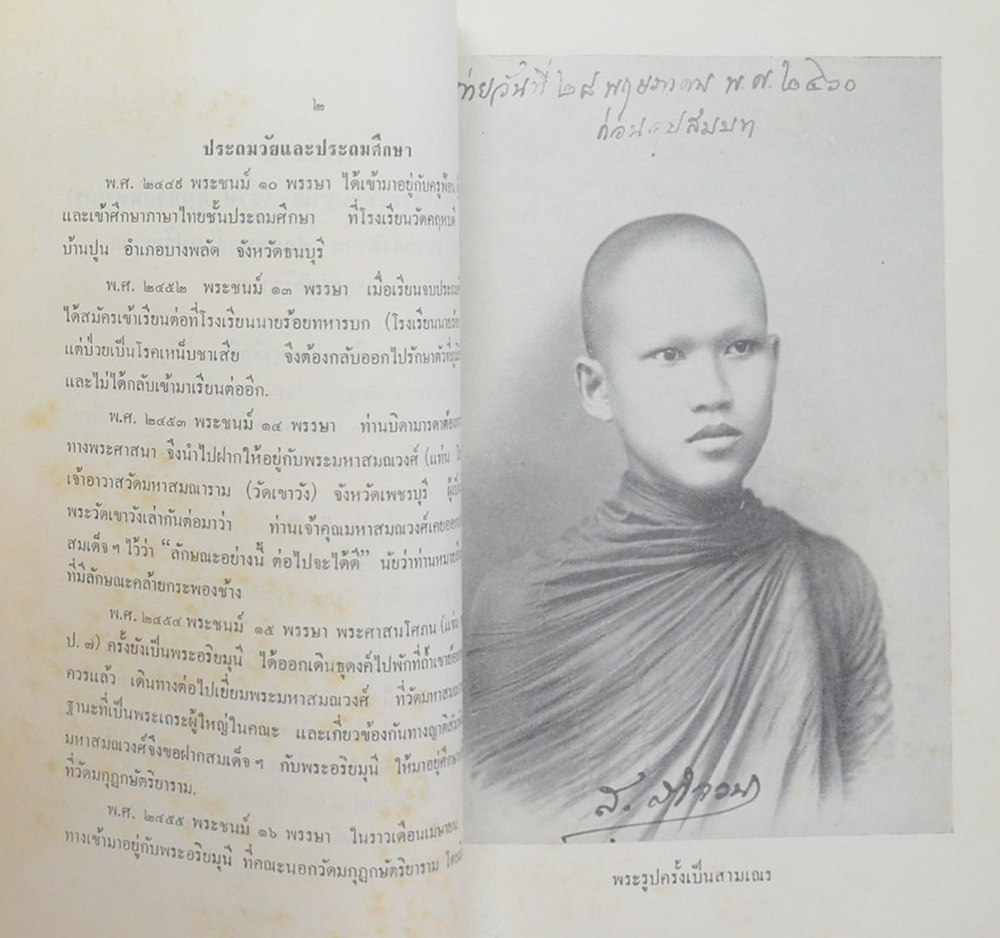 ๒
ประถมวัยและประถมศึกษา
พ.ศ. ๒๔๔๙ พระชนม์ ๑๐ พรรษา ได้เข้ามาอยู่กับครูฟ้อน
และเข้าศึกษาภาษาไทยชั้นประถมศึกษา ที่โรงเรียนวัดคฤหบดี
บ้านปูน อำเภอบางพลัด จังหวัดธนบุรี
พ.ศ. ๒๔๕๒ พระชนม์ ๑๓ พรรษา เมื่อเรียนจบประถม
ได้สมัครเข้าเรียนต่อที่โรงเรียนนายร้อยทหารบก (โรงเรียนนายร้อย
แต่ป่วยเป็นโรคเหน็บชาเสีย จึงต้องกลับออกไปรักษาตัวที่
และไม่ได้กลับเข้ามาเรียนต่ออีก.
พ.ศ. ๒๔๕๓ พระชนม์ ๑๔ พรรษา ท่านบิดามารดาต้อง
ทางพระศาสนา จึงนำไปฝากให้อยู่กับพระมหาสมณวงศ์ (แท่น
เจ้าอาวาสวัดมหาสมณาราม (วัดเขาวัง) จังหวัดเพชรบุรี
พระวัดเขาวังเล่ากันต่อมาว่า ท่านเจ้าคุณมหาสมณวงศ์เคยออก
สมเด็จ ฯ ไว้ว่า “ลักษณะอย่างนี้ ต่อไปจะได้ดี” นัยว่าท่านหมาย
ที่มีลักษณะคล้ายกระพองช้าง
พ.ศ. ๒๔๕๔ พระชนม์ ๑๕ พรรษา พระศาสนโศภน (แจ่ม
ป. ๗) ครั้งยังเป็นพระอริยมุนี ได้ออกเดินธุดงค์ไปพักที่ถ้ำเขาย้อย
ควรแล้ว เดินทางต่อไปเยี่ยมพระมหาสมณวงศ์ ที่วัดมหาสมณา
ฐานะที่เป็นพระเถระผู้ใหญ่ในคณะ และเกี่ยวข้องกันทางญาติ
มหาสมณวงศ์จึงขอฝากสมเด็จ ฯ กับพระอริยมุนี ให้มาอยู่ศึกษา
ที่วัดมกุฏกษัตริยาราม.
พ.ศ. ๒๔๕๕ พระชนม์ ๑๖ พรรษา ในราวเดือนเมษายน
ทางเข้ามาอยู่กับพระอริยมุนี ที่คณะนอกวัดมกุฏกษัตริยาราม โดย
ถ่ายวันที่ ๒๘ พฤษภาคม พ.ศ. ๒๔๖๐
ก่อนอุปสมบท
พระรูปครั้งเป็นสามเณร